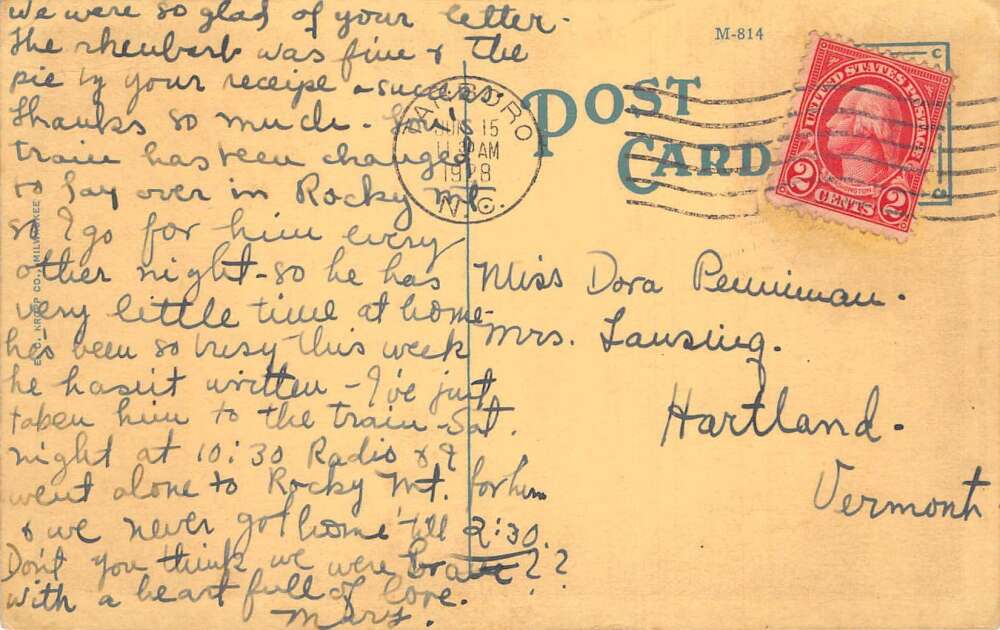 We were so glad of your letter.
The rheubarb was fine & the
pie by your receipe a success.
Thanks so much.
train has been changed
to lay over in Rocky Mt.
so I go for him every
other night - so he has
very little time at home.
he's been so busy this week
he hasn't written - I've just
taken him to the train - Sat.
night at 10:30 Radio & I
went alone to Rocky Mt. for him
& we never got home till 2:30.
Don't you think we were brave??
With a heart full of love.
Mary.
E. C. KROPP CO., MILWAUKEE
M-814
POST
CARD
JUN 15
AM
1928
N.C.
UNITED STATES POSTAGE
WASHINGTON
2 CENTS 2
Miss Dora Penniman.
Mrs. Lansing.
Hartland.
Vermont